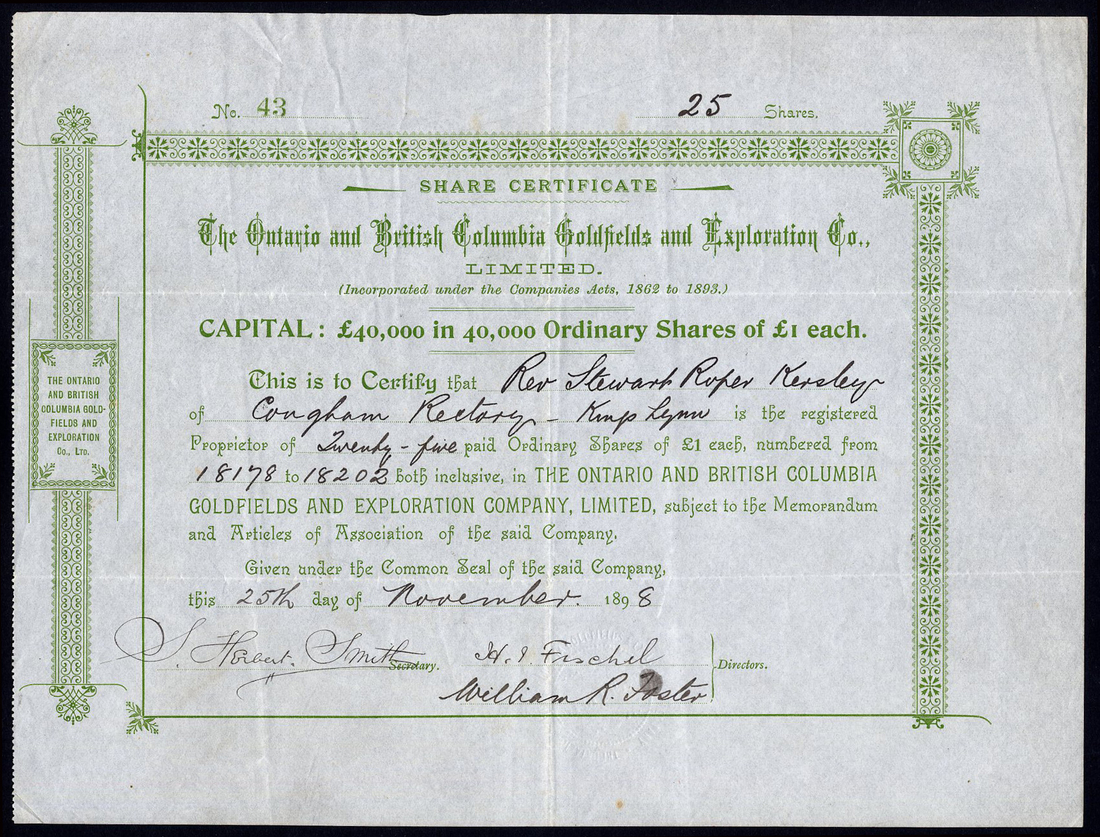 No. 43
25 Shares.
SHARE CERTIFICATE
The Ontario and British Columbia Goldfields and Exploration Co.,
LIMITED.
(Incorporated under the Companies Acts, 1862 to 1893.)
CAPITAL: £40,000 in 40,000 Ordinary Shares of £1 each.
This is to Certify that Rev Stewart Roper Kersley
of Congham Rectory - Kings Lynn is the registered
Proprietor of Twenty-five paid Ordinary Shares of £1 each, numbered from
18178 to 18202 both inclusive, in THE ONTARIO AND BRITISH COLUMBIA
GOLDFIELDS AND EXPLORATION COMPANY, LIMITED, subject to the Memorandum
and Articles of Association of the said Company,
Given under the Common Seal of the said Company,
this 25th day of November. 1898
S. Herbert. Smith Secretary.
H. I. Fischel
William R. Foster
Directors.
THE ONTARIO
AND BRITISH
COLUMBIA GOLD-
FIELDS AND
EXPLORATION
Co., LTD.